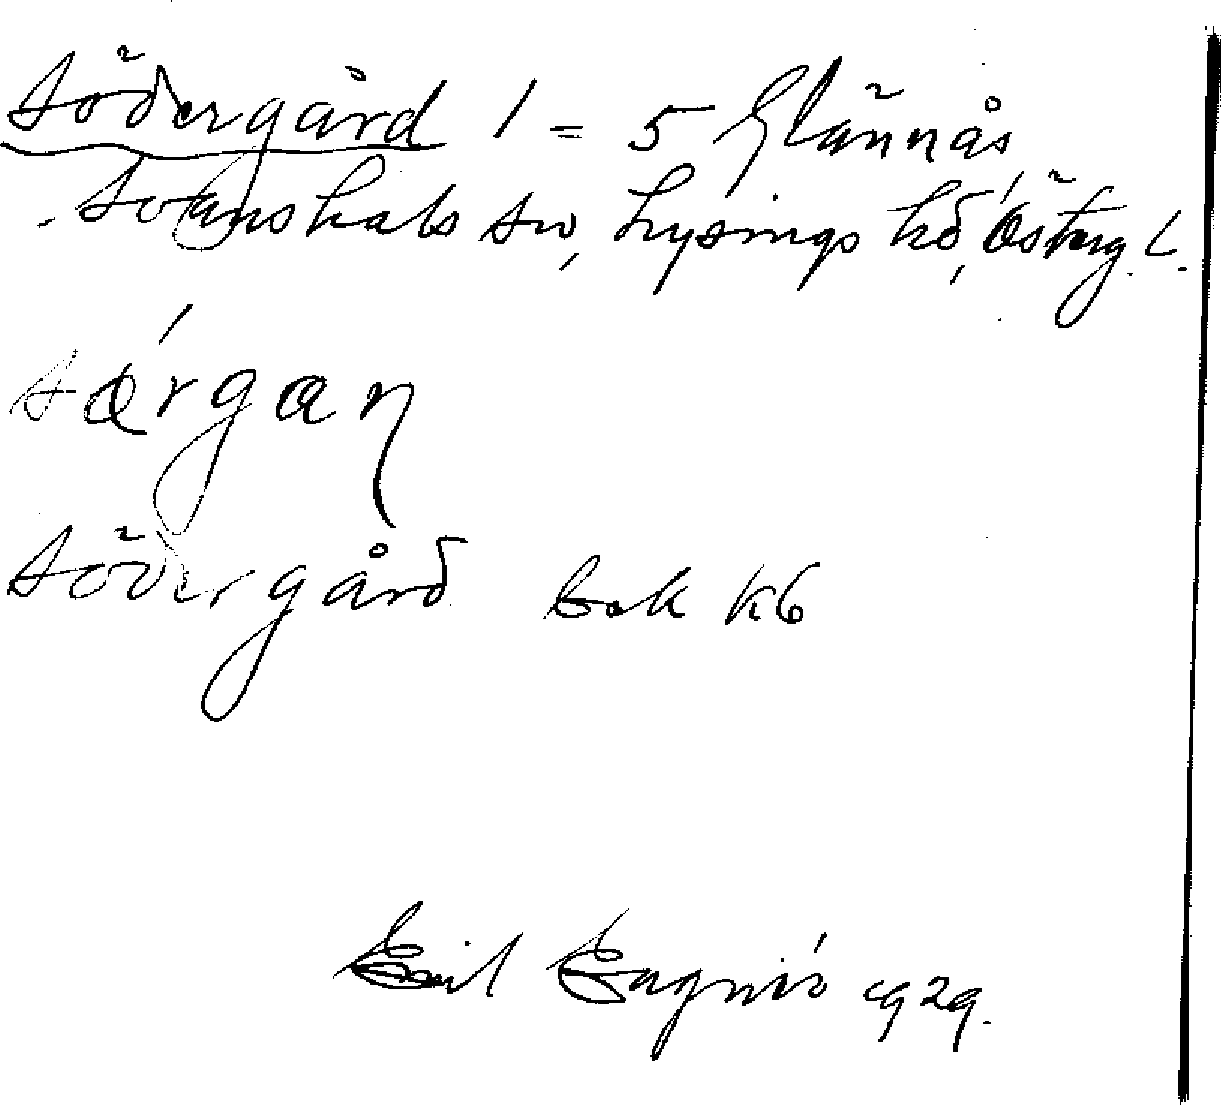 Södergård 1 = 5 Glännås
Svanshals sn, Lysings hd, Österg. L.
sǿrgaɳ
Södergård bok K6
Emil 1929.